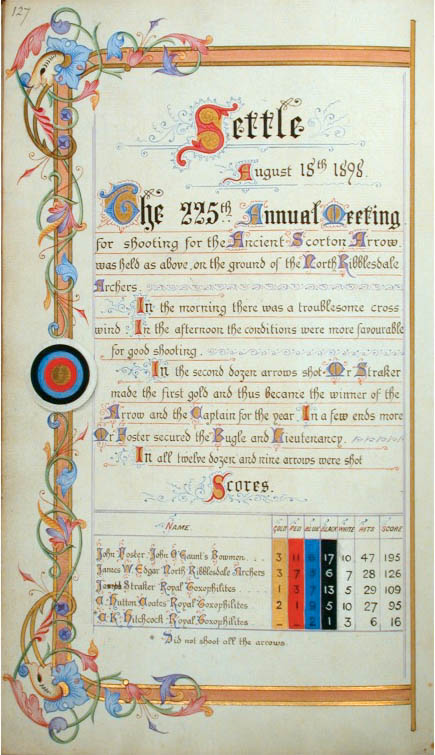 127
Settle
August 18th 1898.
The 225th Annual Meeting
for shooting for the Ancient Scorton Arrow
was held as above, on the ground of the North Ribblesdale
Archers.
In the morning there was a troublesome cross
wind: In the afternoon the conditions were more favourable
for good shooting.
In the second dozen arrows shot Mr Straker
made the first gold and thus became the winner of the
Arrow and the Captain for the year. In a few ends more
Mr Foster secured the Bugle and Lieutenancy.
In all twelve dozen and nine arrows were shot
Scores.
NAME. GOLD RED BLUE BLACK WHITE HITS SCORE
John Foster John O'Gaunt's Bowmen... 3 11 6 17 10 47 195
James W. Edgar North Ribblesdale Archers 3 7 5 6 7 28 126
Joseph Straker Royal Toxophilites 1 3 7 13 5 29 109
Hutton Coates Royal Toxophilites 2 1 9 5 10 27 95
Hitchcock Royal Toxophilites - - 2 1 3 6 16
* Did not shoot all the arrows.